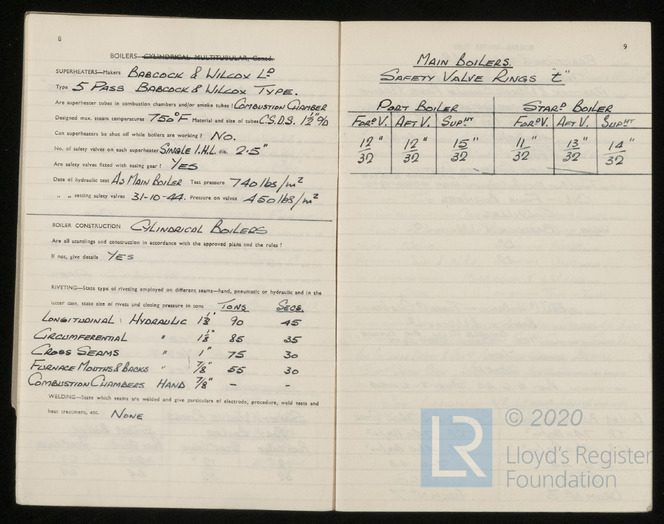 8
BOILERS—CYLINDRICAL MULTITUBULAR, Contd.
SUPERHEATERS—Makers BABCOCK & WILCOX LD
Type 5 PASS BABCOCK & WILCOX TYPE.
Are superheater tubes in combustion chambers and/or smoke tubes? COMBUSTION CHAMBER
Designed max. steam temperatures 750°F Material and size of tubes C.S.D.S. 1½" O/D
Can superheaters be shut off while boilers are working? NO.
No. of safety valves on each superheater SINGLE I.H.L. dia. 2·5"
Are safety valves fitted with easing gear? YES
Date of hydraulic test AS MAIN BOILER Test pressure 740 lbs/in²
" " setting safety valves 31-10-44. Pressure on valves 450 lbs/in²
BOILER CONSTRUCTION CYLINDRICAL BOILERS
Are all scantlings and construction in accordance with the approved plans and the rules?
If not, give details YES
RIVETING—State type of riveting employed on different seams—hand, pneumatic or hydraulic and in the
latter case, state size of rivets and closing pressure in tons TONS SECS.
LONGITUDINAL : HYDRAULIC 1⅛" 90 45
CIRCUMFERENTIAL " 1⅛" 85 35
CROSS SEAMS " 1" 75 30
FURNACE MOUTHS & BACKS " 7/8" 55 30
COMBUSTION CHAMBERS HAND 7/8" - -
WELDING—State which seams are welded and give particulars of electrode, procedure, weld tests and
heat treatment, etc. NONE
9
MAIN BOILERS
SAFETY VALVE RINGS "t"
PORT BOILER STARD BOILER
FORD V. AFT V. SUPHT FORD V. AFT V. SUPHT
12/32" 12/32" 15/32" 11/32" 13/32" 14/32"
© 2020
LR Lloyd's Register
Foundation